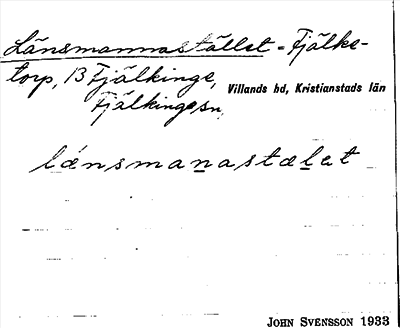 Länsmannastället = Fjälke-
torp, 13 Fjälkinge,
Villands hd, Kristianstads län
Fjälkinge sn,
länsmanastælet
JOHN SVENSSON 1933